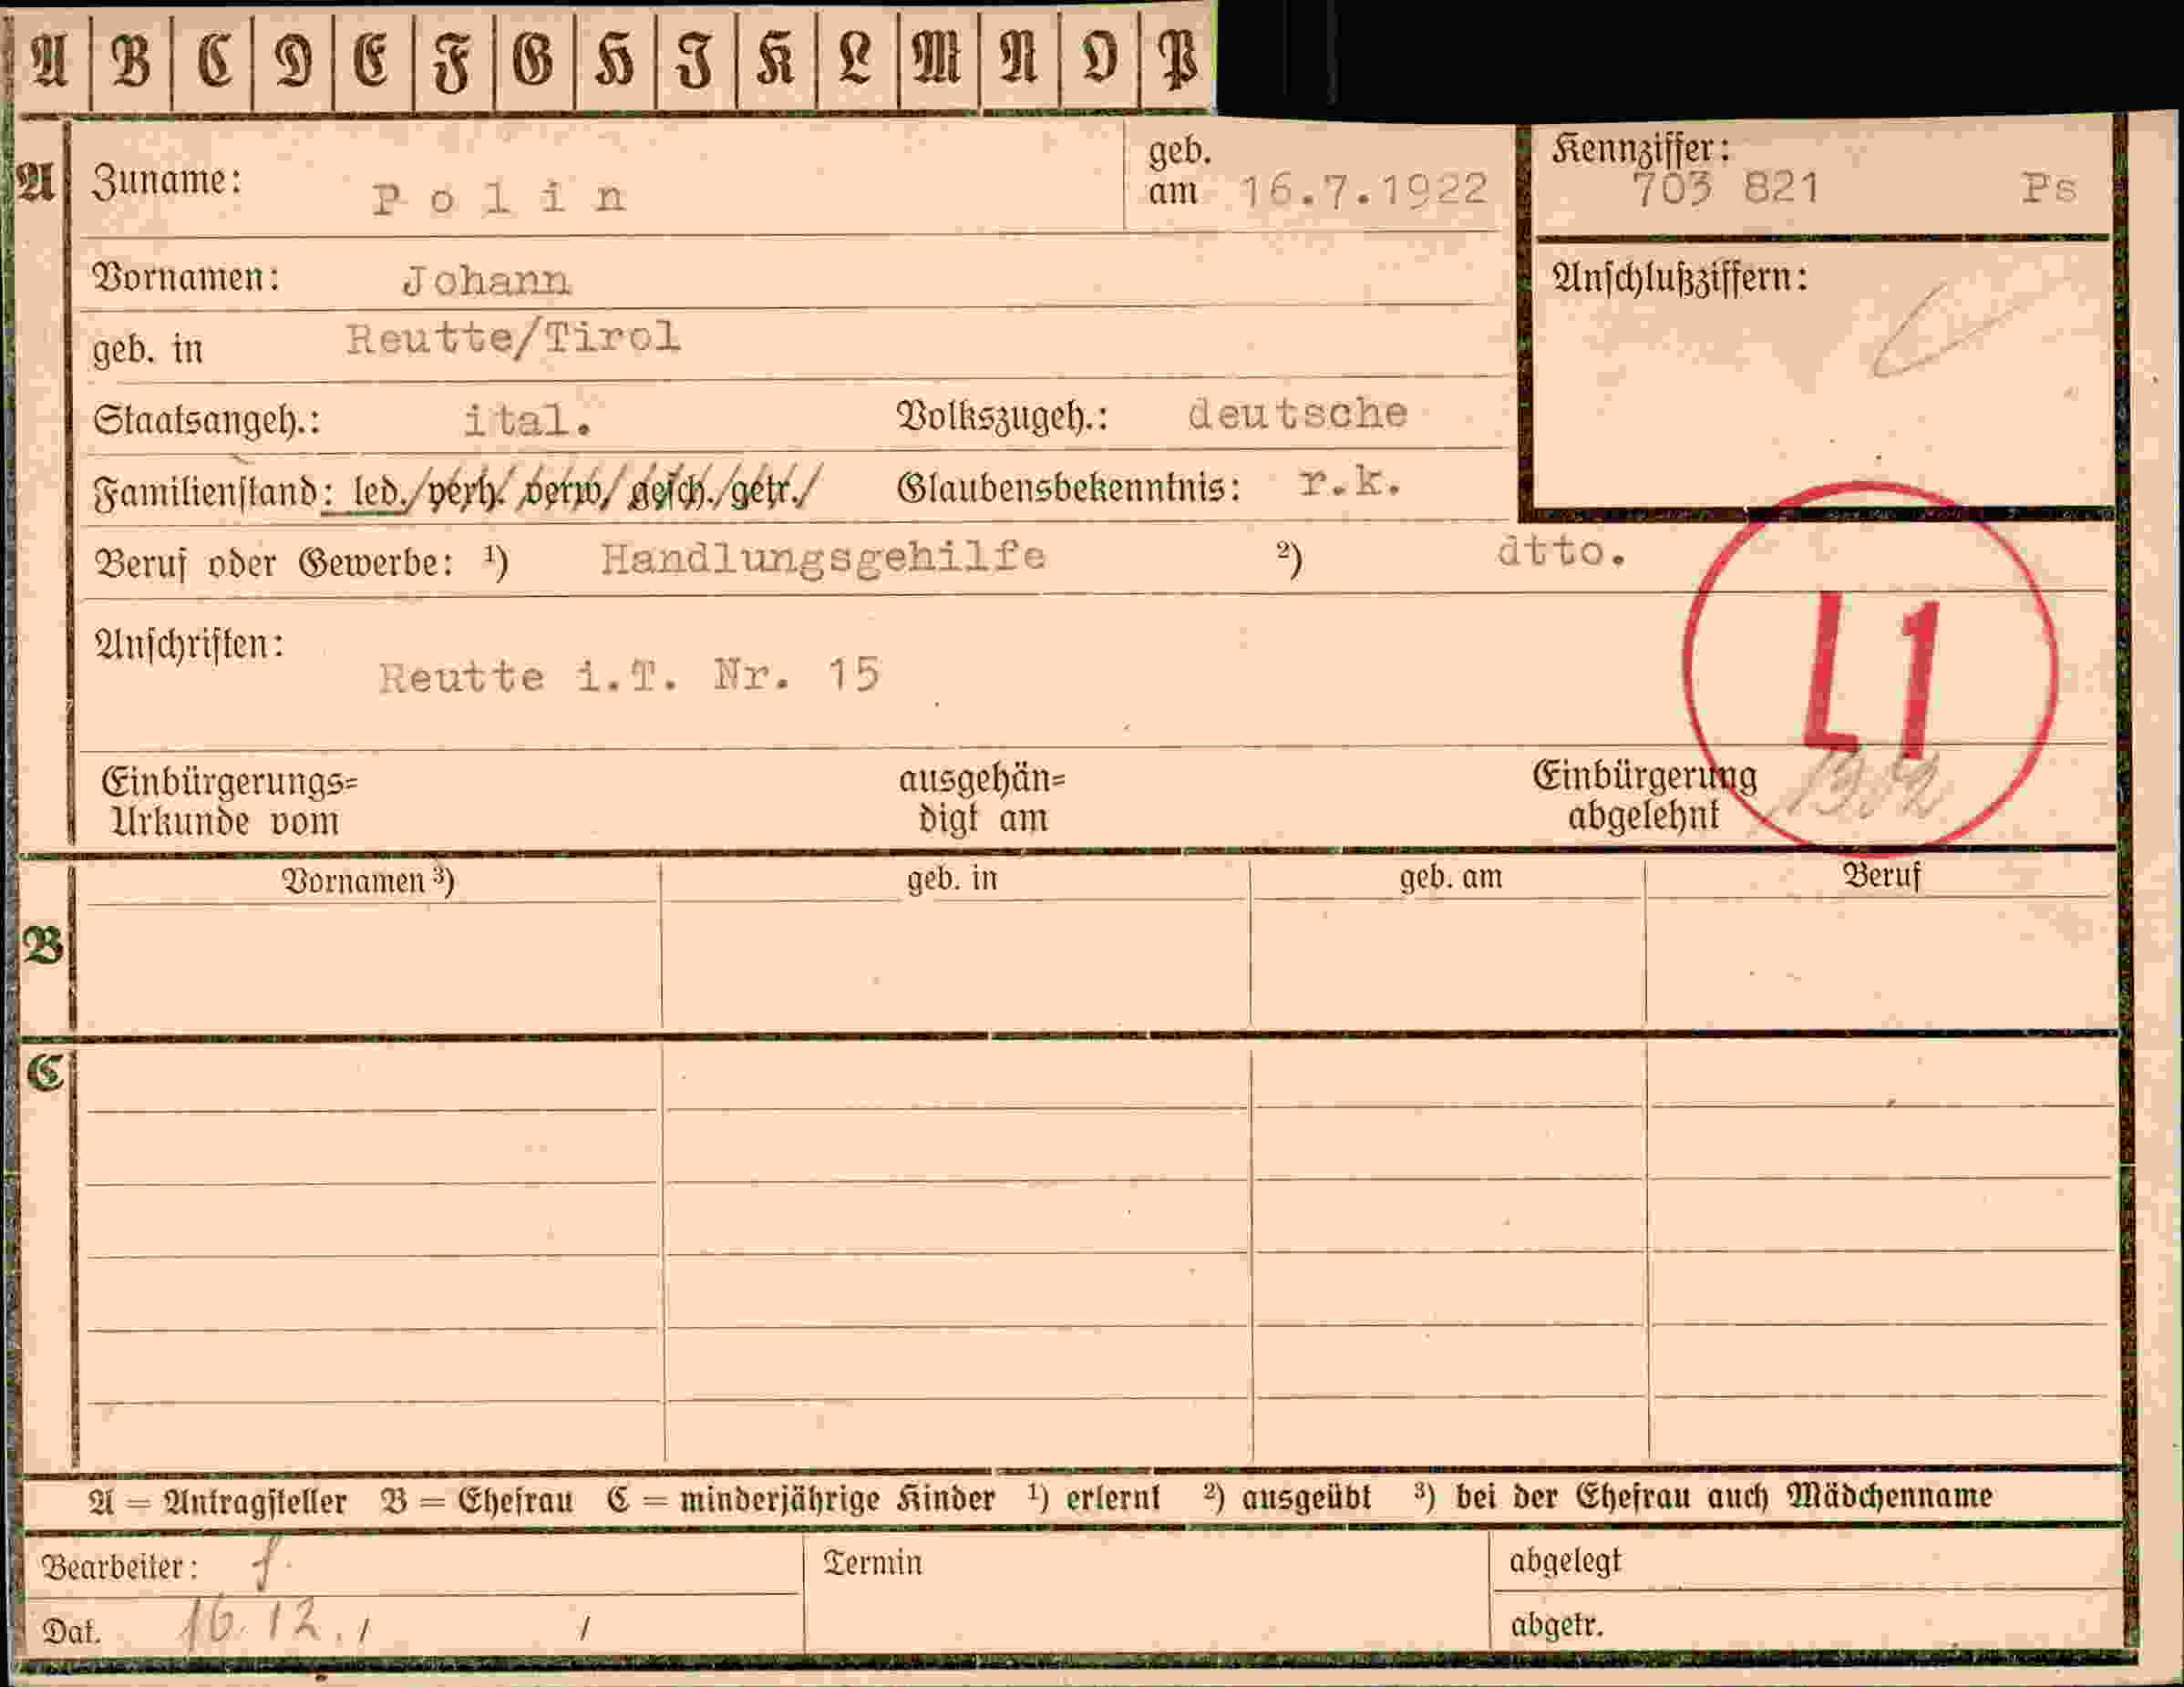 A B C D E F G H I K L M N O P
A Zuname: Polin geb. am 16.7.1922 Kennziffer: 703 821 Ps
Vornamen: Johann Anschlußziffern:
geb. in Reutte/Tirol
Staatsangeh.: ital. Volkszugeh.: deutsche
Familienstand: led./verh./verw./gesch./getr./ Glaubensbekenntnis: r.k.
Beruf oder Gewerbe: ¹) Handlungsgehilfe ²) dtto.
L1
Anschriften:
Reutte i.T. Nr. 15
Einbürgerungs= ausgehän= Einbürgerung
Urkunde vom digt am abgelehnt
Vornamen ³) geb. in geb. am Beruf
B
C
A = Antragsteller B = Ehefrau C = minderjährige Kinder ¹) erlernt ²) ausgeübt ³) bei der Ehefrau auch Mädchenname
Bearbeiter: f. Termin abgelegt
Dat. 16.12. / / abgetr.